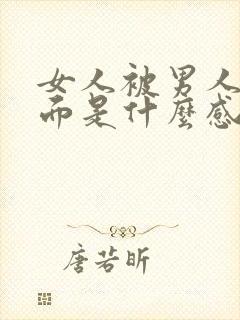 女人被男人
而是什麼感
唐若昕